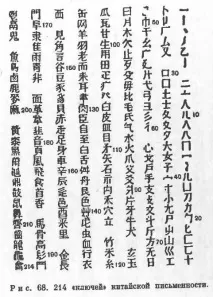 一丨丶丿乙亅
二亠人儿入八冂冖冫几凵刀力勹匕匚匸
十卜卩厂厶又 口囗土士夂夊夕大女子宀寸小尢尸屮山巛工
己巾干幺广廴廾弋弓彐彡彳 心戈戶手支攴文斗斤方无日
曰月木欠止歹殳毋比毛氏气水火爪父爻爿片牙牛犬 玄玉
瓜瓦甘生用田疋疒癶白皮皿目矛矢石示禸禾穴立 竹米糸
缶网羊羽老而耒耳聿肉臣自至臼舌舛舟艮色艸虍虫血行衣
襾 見角言谷豆豕豸貝赤走足身車辛辰辵邑酉釆里 金長
門阜隶隹雨靑非 面革韋韭音頁風飛食首香 馬骨高髟鬥
鬯鬲鬼 魚鳥鹵鹿麥麻 黃黍黑黹黽鼎鼓鼠鼻齊齒龍龜龠
Рис. 68. 214 «ключей» китайской письменности.